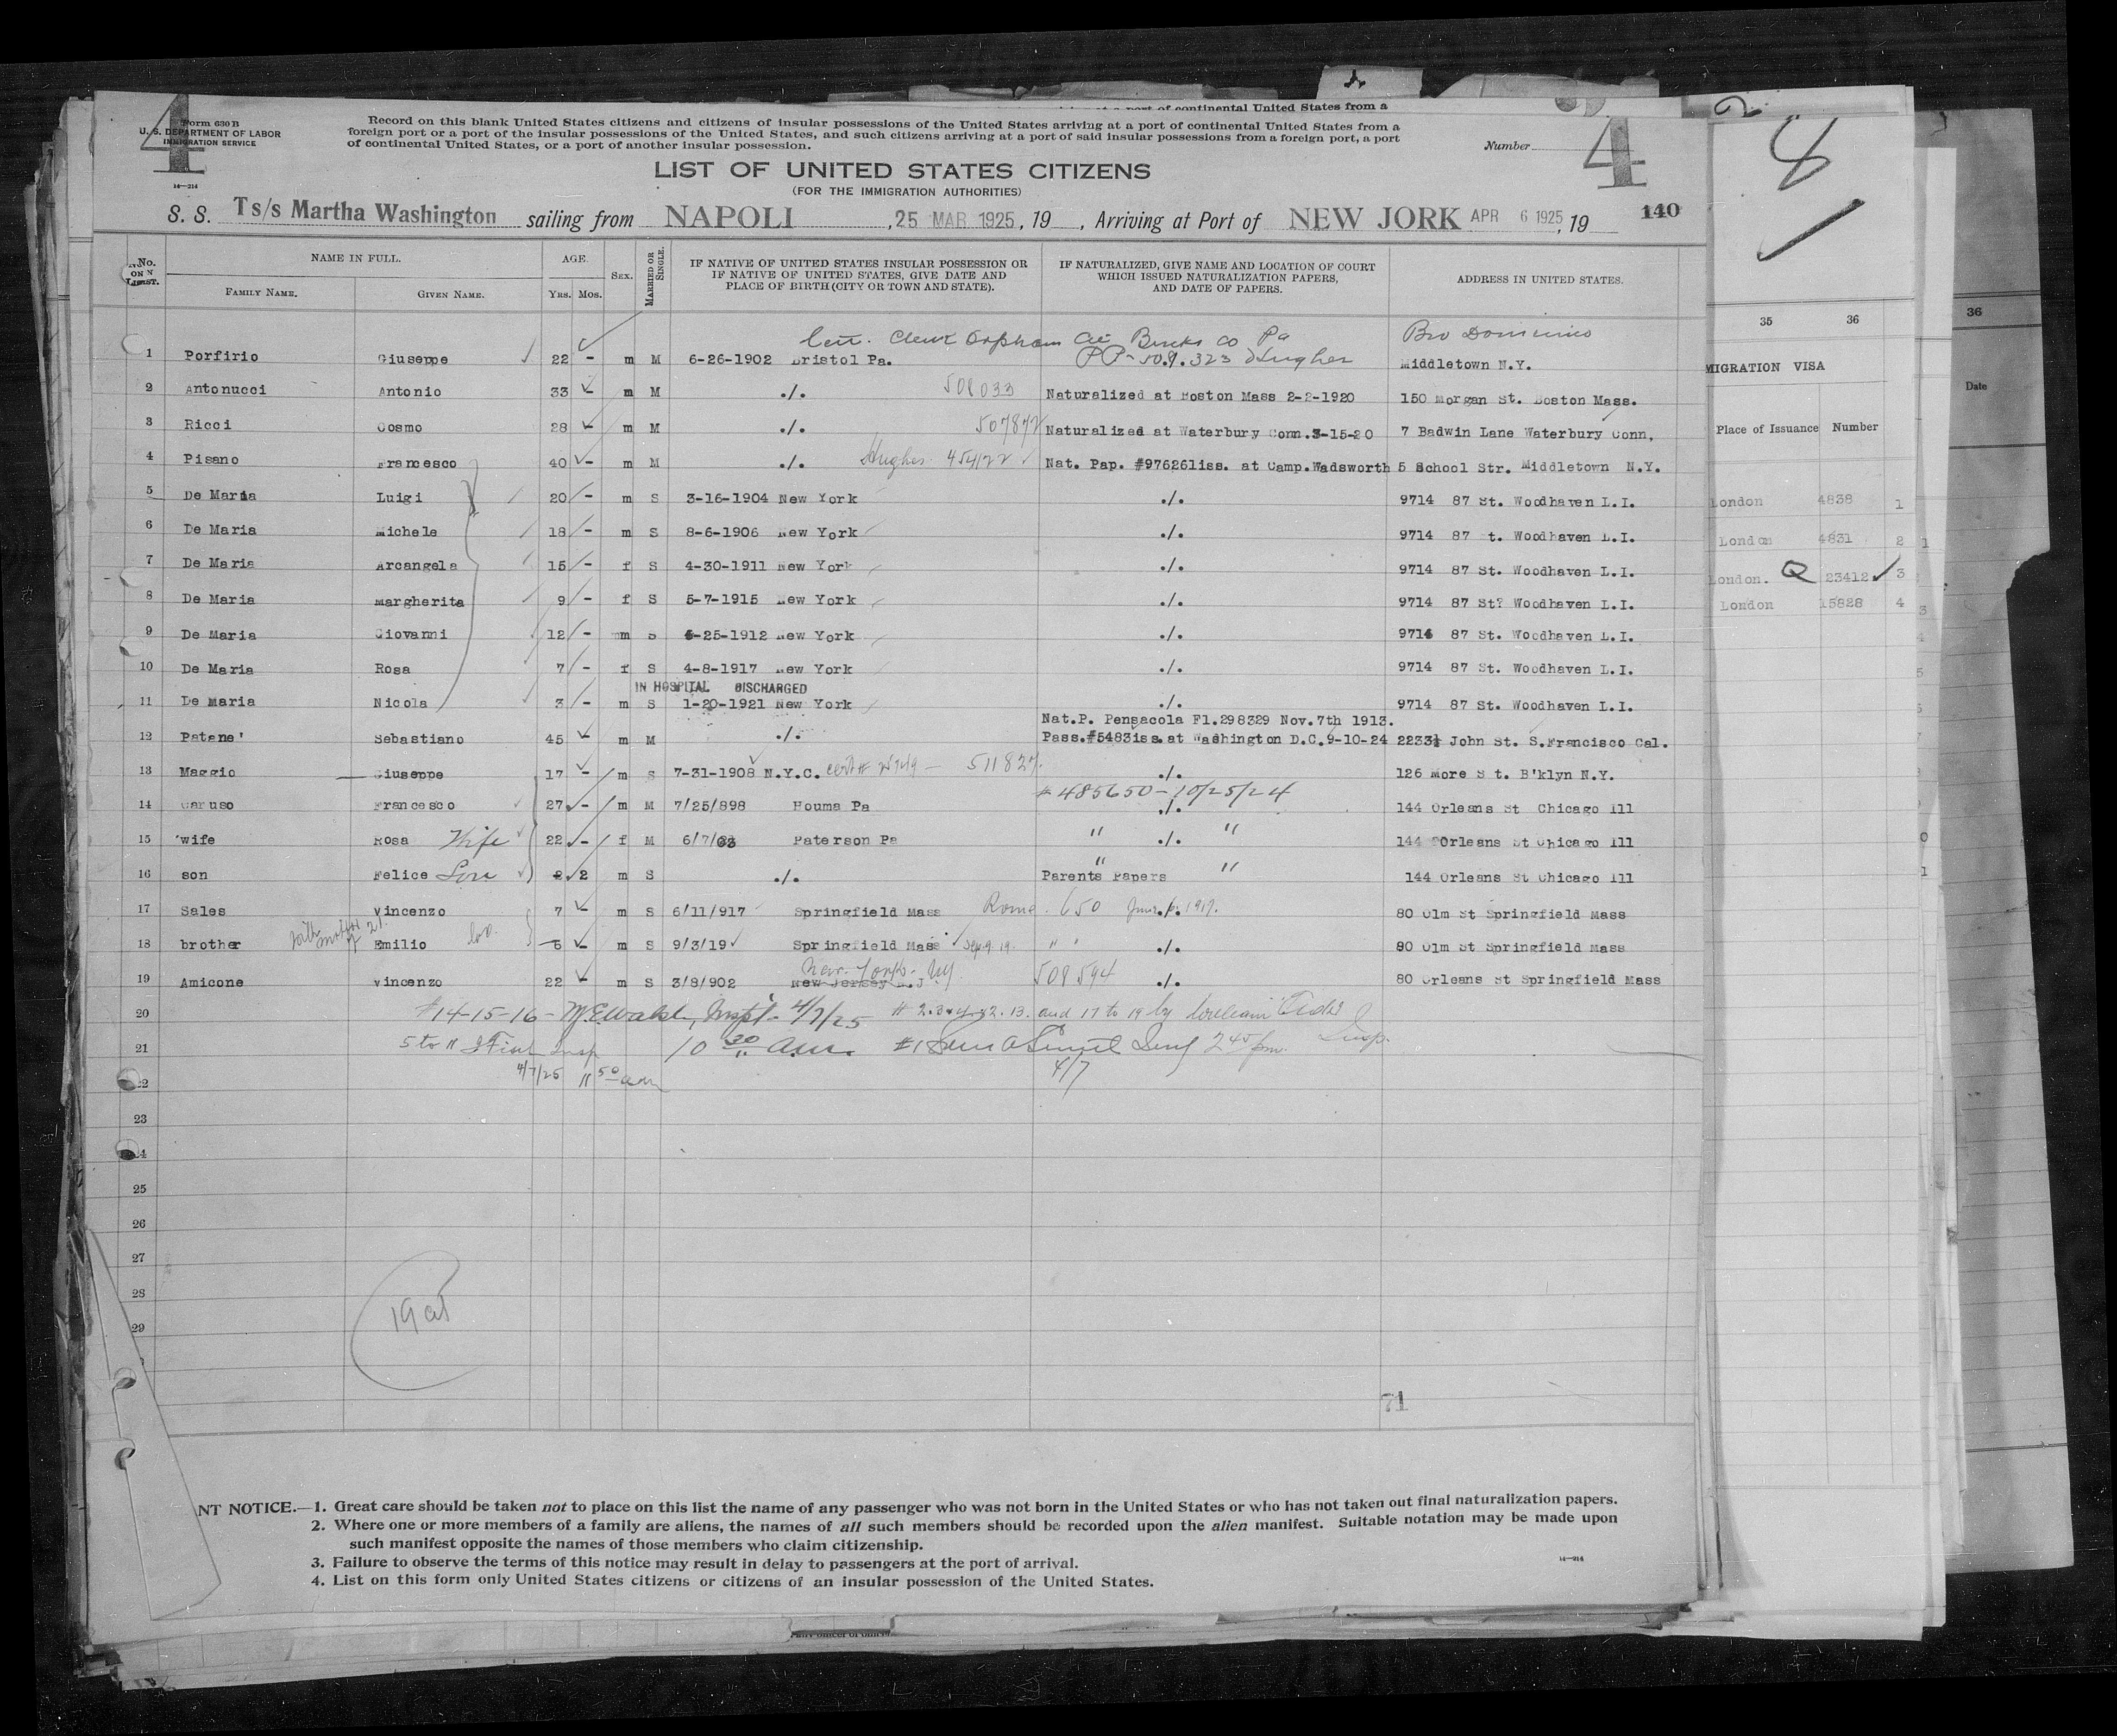 4
Form 630 B
U. S. DEPARTMENT OF LABOR
IMMIGRATION SERVICE
14—214
of continental United States from a
Record on this blank United States citizens and citizens of insular possessions of the United States arriving at a port of continental United States from a
foreign port or a port of the insular possessions of the United States, and such citizens arriving at a port of said insular possessions from a foreign port, a port
of continental United States, or a port of another insular possession.
Number 4
LIST OF UNITED STATES CITIZENS
(FOR THE IMMIGRATION AUTHORITIES)
S. S. Ts/s Martha Washington sailing from NAPOLI , 25 MAR 1925, 19 , Arriving at Port of NEW JORK APR 6 1925, 19 140
No. ON LIST. NAME IN FULL. AGE. SEX. MARRIED OR SINGLE. IF NATIVE OF UNITED STATES INSULAR POSSESSION OR IF NATIVE OF UNITED STATES, GIVE DATE AND PLACE OF BIRTH (CITY OR TOWN AND STATE). IF NATURALIZED, GIVE NAME AND LOCATION OF COURT WHICH ISSUED NATURALIZATION PAPERS, AND DATE OF PAPERS. ADDRESS IN UNITED STATES.
FAMILY NAME. GIVEN NAME. YRS. MOS.
Clerk Orphan Bucks Co Pa Bro Domenico
1 Porfirio Giuseppe 22 - m M 6-26-1902 Bristol Pa. PP-509.323 Hughes Middletown N.Y.
2 Antonucci Antonio 33 - m M ./. 508033 Naturalized at Boston Mass 2-2-1920 150 Morgan St. Boston Mass.
3 Ricci Cosmo 28 - m M ./. 507872 Naturalized at Waterbury Conn.3-15-20 7 Badwin Lane Waterbury Conn,
4 Pisano Francesco 40 - m M ./. Hughes 454122 Nat. Pap. #976261iss. at Camp.Wadsworth 5 School Str. Middletown N.Y.
5 De Maria Luigi 20 - m S 3-16-1904 New York ./. 9714 87 St. Woodhaven L.I.
6 De Maria Michele 18 - m S 8-6-1906 New York ./. 9714 87 t. Woodhaven L.I.
7 De Maria Arcangela 15 - f S 4-30-1911 New York ./. 9714 87 St. Woodhaven L.I.
8 De Maria Margherita 9 - f S 5-7-1915 New York ./. 9714 87 St? Woodhaven L.I.
9 De Maria Giovanni 12 - m S 6-25-1912 New York ./. 9714 87 St. Woodhaven L.I.
10 De Maria Rosa 7 - f S 4-8-1917 New York ./. 9714 87 St. Woodhaven L.I.
IN HOSPITAL DISCHARGED
11 De Maria Nicola 3 - m S 1-20-1921 New York ./. 9714 87 St. Woodhaven L.I.
Nat.P. Pensacola Fl.298329 Nov.7th 1913.
12 Patane' Sebastiano 45 - m M ./. Pass.#5483iss.at Washington D.C.9-10-24 2233½ John St. S.Francisco Cal.
13 Maggio Giuseppe 17 - m S 7-31-1908 N.Y.C. cert # 511827 ./. 126 More S t. B'klyn N.Y.
# 485650 - 10/25/24
14 Caruso Francesco 27 - m M 7/25/898 Houma Pa ./. 144 Orleans St Chicago Ill
15 'wife Rosa Wife 22 - f M 6/7/03 Paterson Pa " ./. " 144 Orleans St Chicago Ill
16 son Felice Son 2 2 m S ./. Parents Papers " " 144 Orleans St Chicago Ill
17 Sales Vincenzo 7 - m S 6/11/917 Springfield Mass Rome 650 ./. 1917. 80 Olm St Springfield Mass
18 brother with mother Emilio bro. 5 - m S 9/3/19 Springfield Mass Sep. 9. 19. " " ./. 80 Olm St Springfield Mass
New York. NY
19 Amicone Vincenzo 22 - m S 3/8/902 New Jersey N.J 508594 ./. 80 Orleans St Springfield Mass
20 #14-15-16- Inspt- 4/7/25 and 17 to 19 by
21 5 to 11 Insp 10 30 a.m. 2 45 pm. Insp.
22 4/7/25 11 50 am 4/7
23
24
25
26
27
28
29
19
71
NT NOTICE.—1. Great care should be taken not to place on this list the name of any passenger who was not born in the United States or who has not taken out final naturalization papers.
2. Where one or more members of a family are aliens, the names of all such members should be recorded upon the alien manifest. Suitable notation may be made upon
such manifest opposite the names of those members who claim citizenship.
3. Failure to observe the terms of this notice may result in delay to passengers at the port of arrival.
4. List on this form only United States citizens or citizens of an insular possession of the United States.
14—214
8
35 36
MIGRATION VISA
Place of Issuance Number
London 4838 1
London 4831 2
London. Q 23412 3
London 15828 4
36
Date